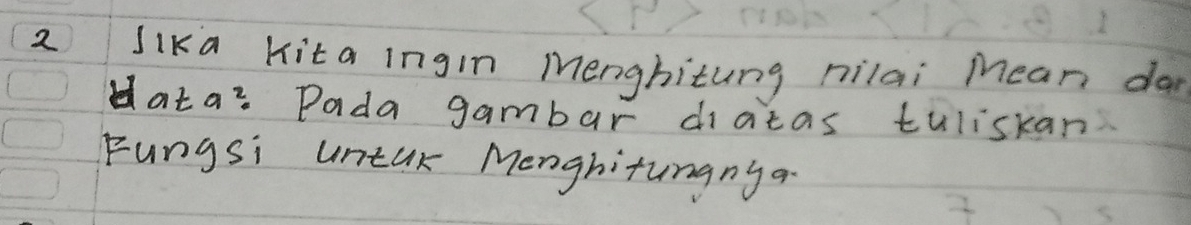 2 Jika kita ingin Menghitung nilai Mean dar
data² Pada gambar diatas tuliskan
Fungsi untuk Menghitungnya.